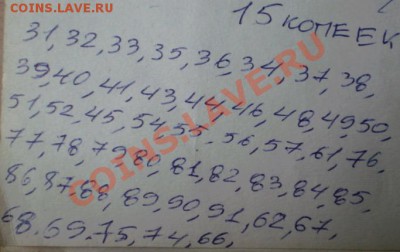 COINS.LAVE.RU
15 КОПЕЕК
31, 32, 33, 35, 36, 34, 37, 38,
39, 40, 41, 43, 44, 46, 48, 49, 50,
51, 52, 45, 54, 55, 56, 57, 61, 76,
77, 78, 79, 80, 81, 82, 83, 84, 85,
86, 87, 88, 89, 90, 91, 62, 67,
68. 69. 75, 74, 66,
COINS.LAVE.RU